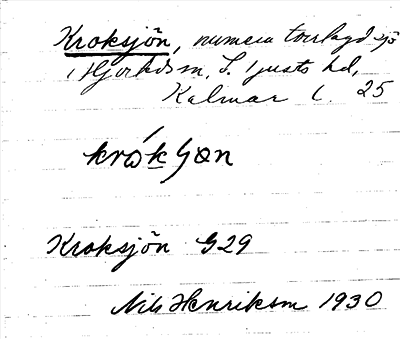 Kroksjön, numera torrlagd sjö
i Hjorteds sn, S. Tjusts hd,
Kalmar l. 25
Kroksjön G29
Nils Henriksson 1930